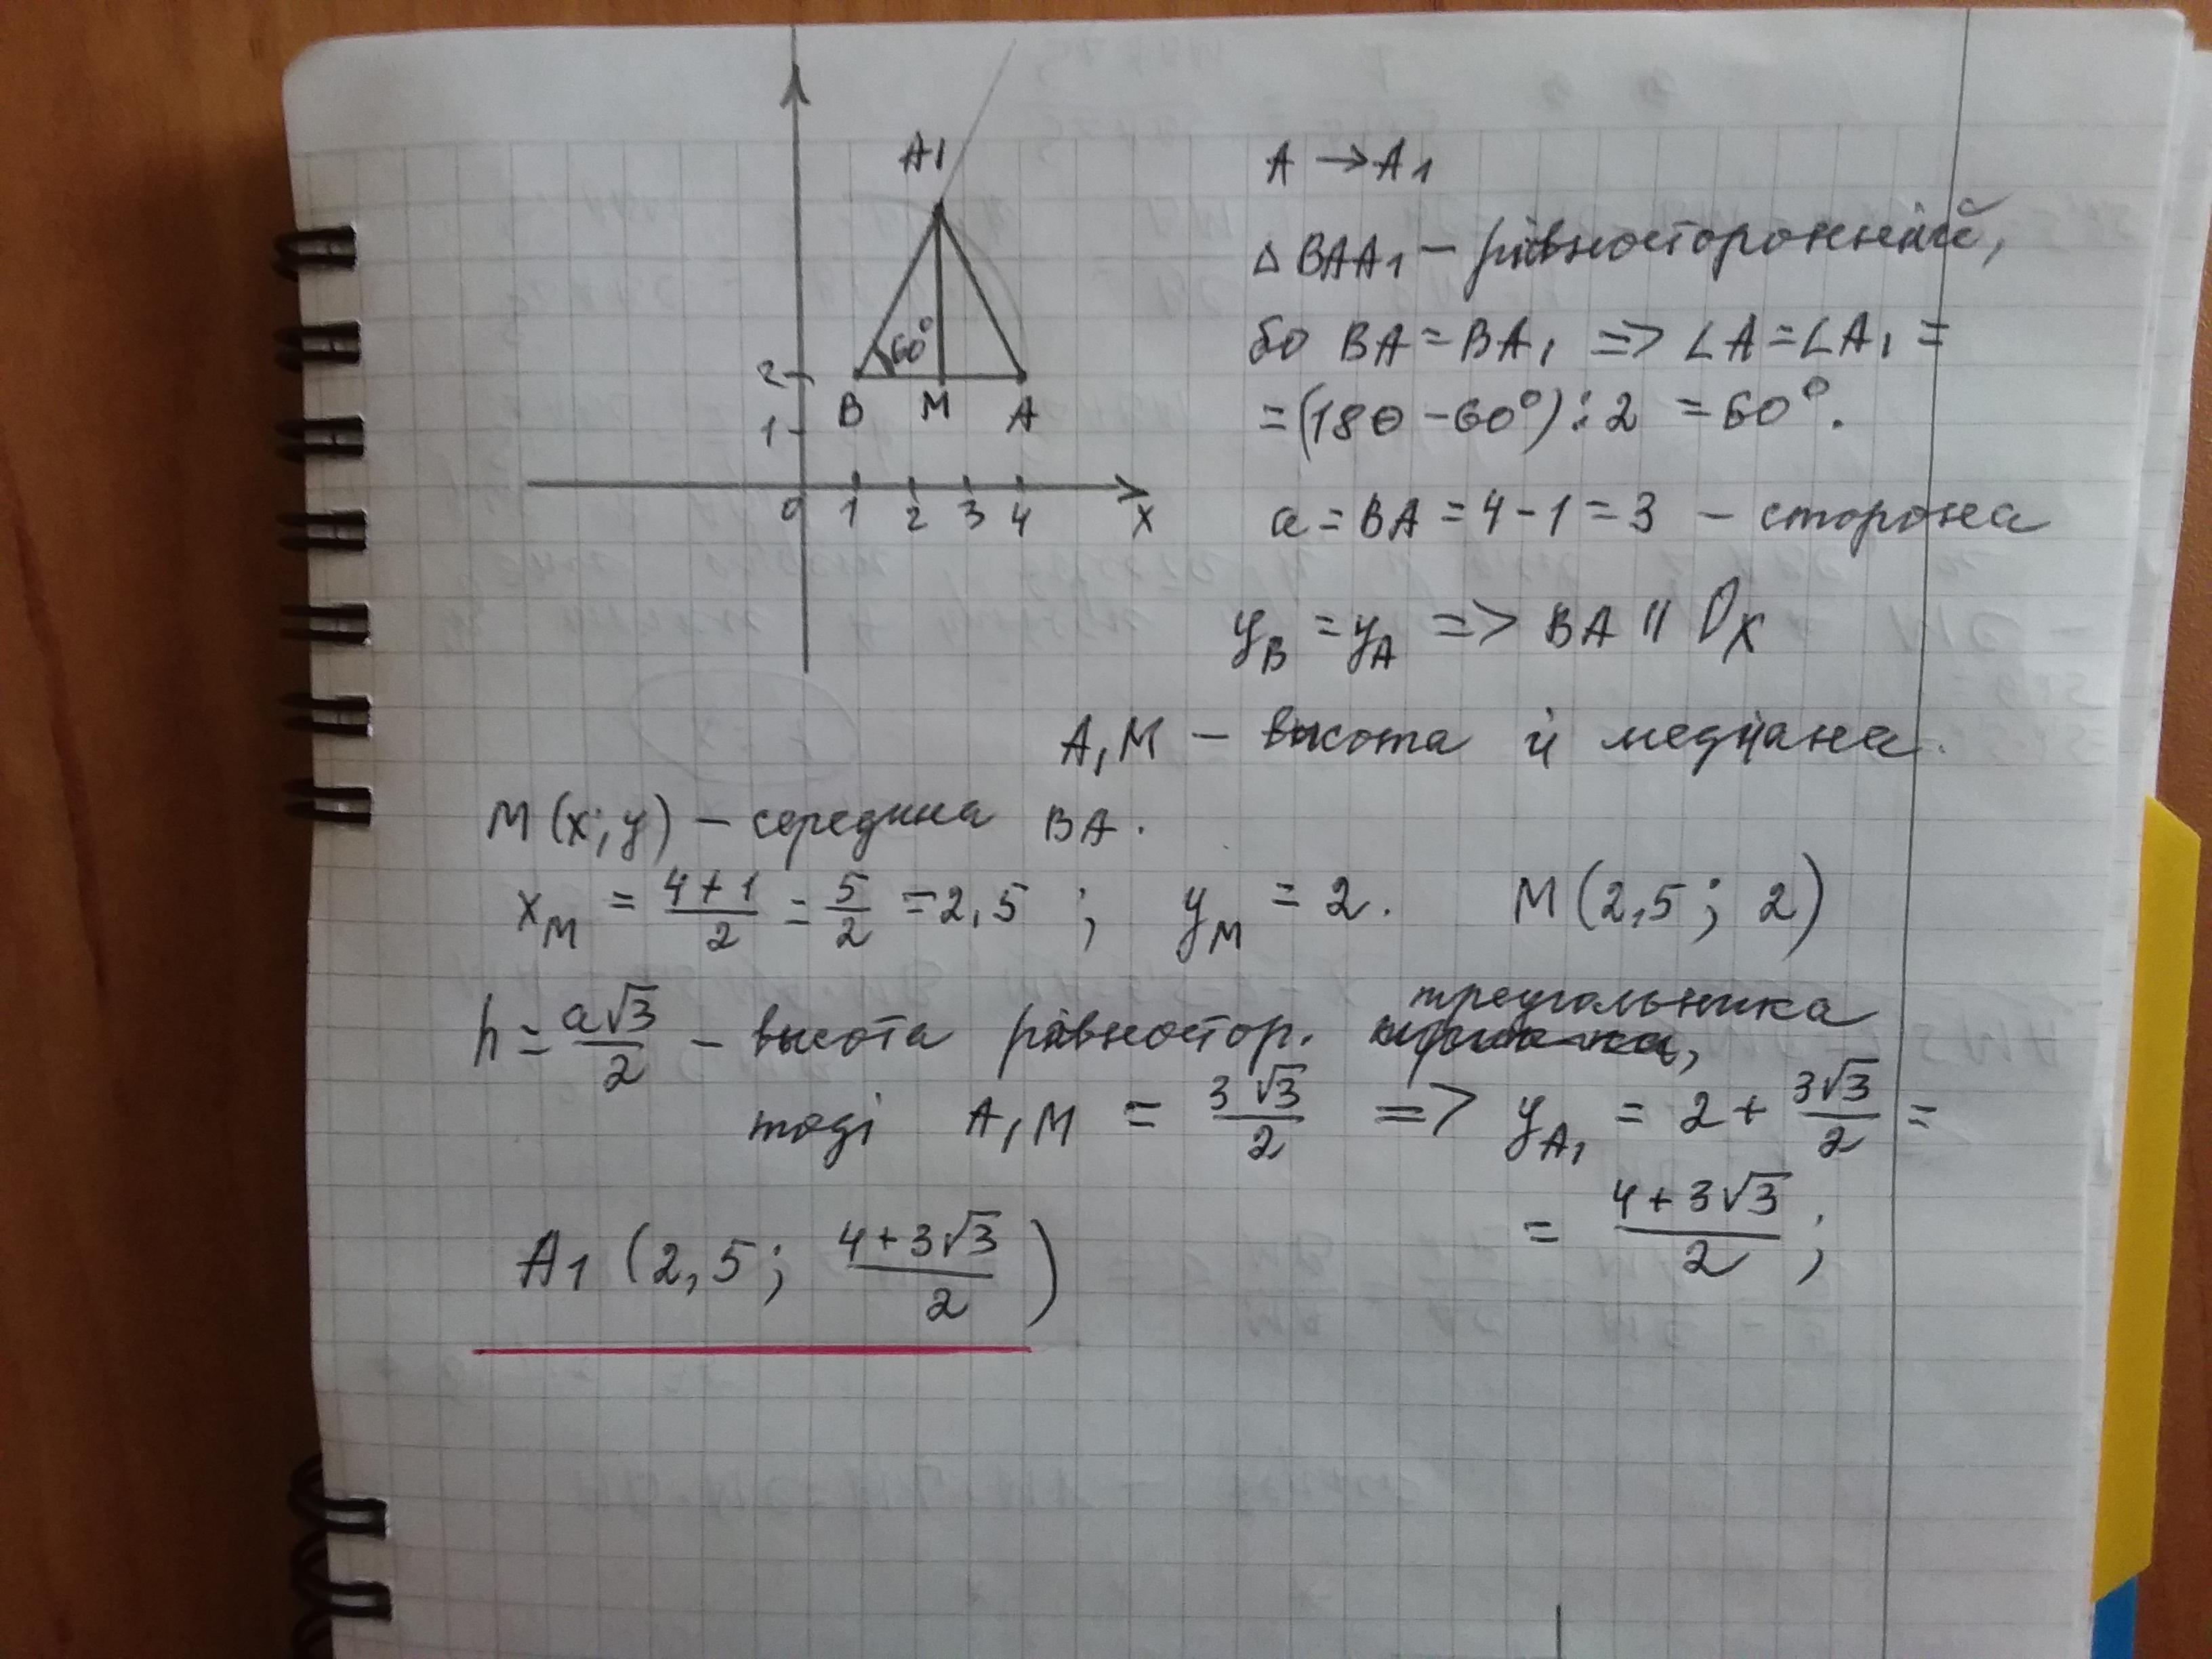 A1
60°
2
B M A
1
0 1 2 3 4 x
A → A1
Δ BAA1 – рівносторонній,
бо BA = BA1 => ∠A = ∠A1 =
= (180 – 60°) : 2 = 60°.
a = BA = 4 - 1 = 3 – сторона
yB = yA => BA || Ox
A1M – висота й медіана.
M (x; y) – середина BA.
xM = (4+1)/2 = 5/2 = 2,5 ; yM = 2. M (2,5 ; 2)
h = a√3/2 – висота рівностор. треугольника,
тоді A1M = 3√3/2 => yA1 = 2 + 3√3/2 =
= (4+3√3)/2 ;
A1 (2,5; (4+3√3)/2)